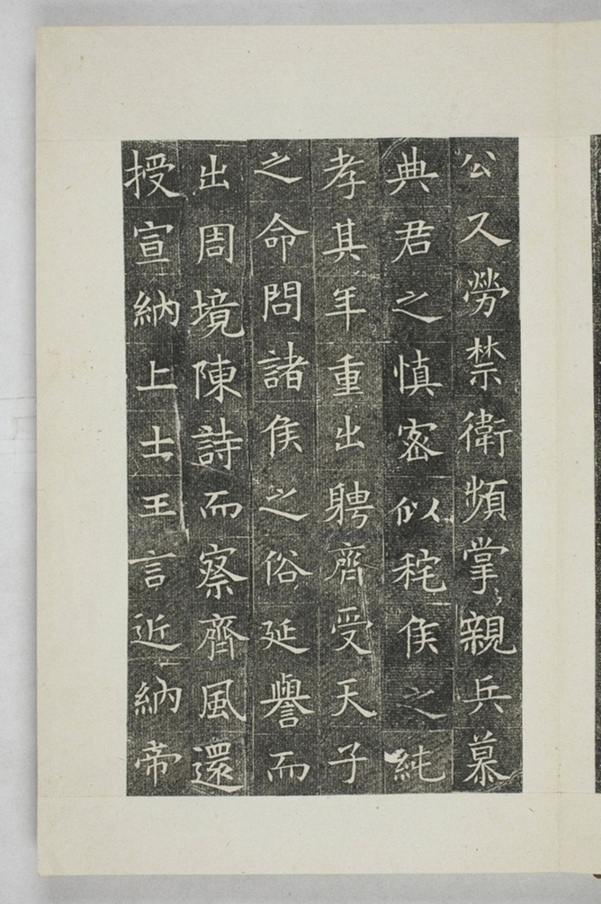 公又勞禁衛頻掌親兵慕
典君之慎密似秺侯之純
孝其年重出聘齊受天子
之命問諸侯之俗延譽而
出周境陳詩而察齊風還
授宣納上士王言近納帝